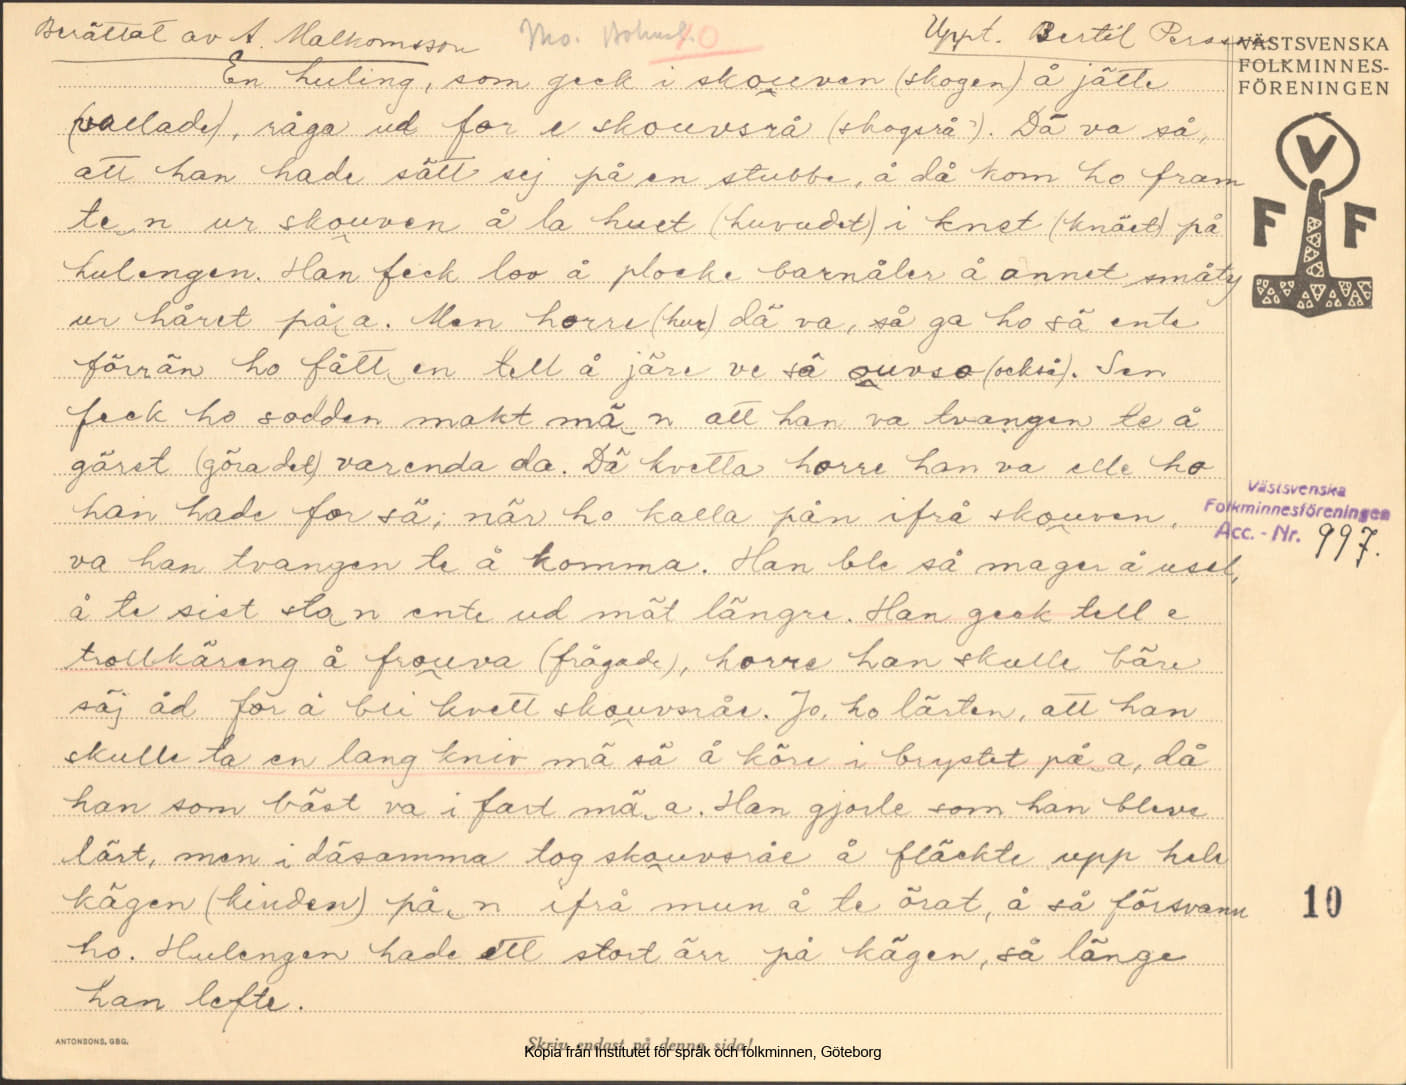 Berättat av A. Malkomsson
Mo. Bohusl. 10
Uppt. Bertil Persson
VÄSTSVENSKA
FOLKMINNES-
FÖRENINGEN
V
F F
En huling, som geck i skouven (skogen) å jätte
(vallade), råga ud for e skouvsrå (skogsrå). Dä va så,
att han hade sått sej på en stubbe, å då kom ho fram
te n ur skouven å la huet (huvudet) i knet (knäet) på
hulengen. Han feck lov å plocke barnåler å annet småty
ur håret på a. Men horre (hur) dä va, så ga ho sä ente
förrän ho fått en tell å järe ve sä ouvso (också). Sen
feck ho sodden makt mä n att han va tvangen te å
gäret (göra det) varenda da. Dä kvetta horre han va elle ho
han hade for sä; när ho kalla pån ifrå skouven,
va han tvangen te å komma. Han ble så mager å usel,
å te sist sto n ente ud mät längre. Han geck tell e
trollkäreng å frouva (frågade), horre han skulle bäre
säj åd for å bli kvett skouvsråe. Jo, ho lärten, att han
skulle ta en lang kniv mä sä å köre i brystet på a, då
han som bäst va i fart mä a. Han gjorle som han bleve
lärt, men i däsamma tog skouvsråe å fläckte upp hele
kägen (kinden) på n ifrå mun å te örat, å så försvann
ho. Hulengen hade ett stort ärr på kägen, så länge
han lefte.
Västsvenska
Folkminnesföreningen
Acc.-Nr. 997.
10
ANTONSONS, GBG.
Skriv endast på denna sida!
Kopia från Institutet för språk och folkminnen, Göteborg